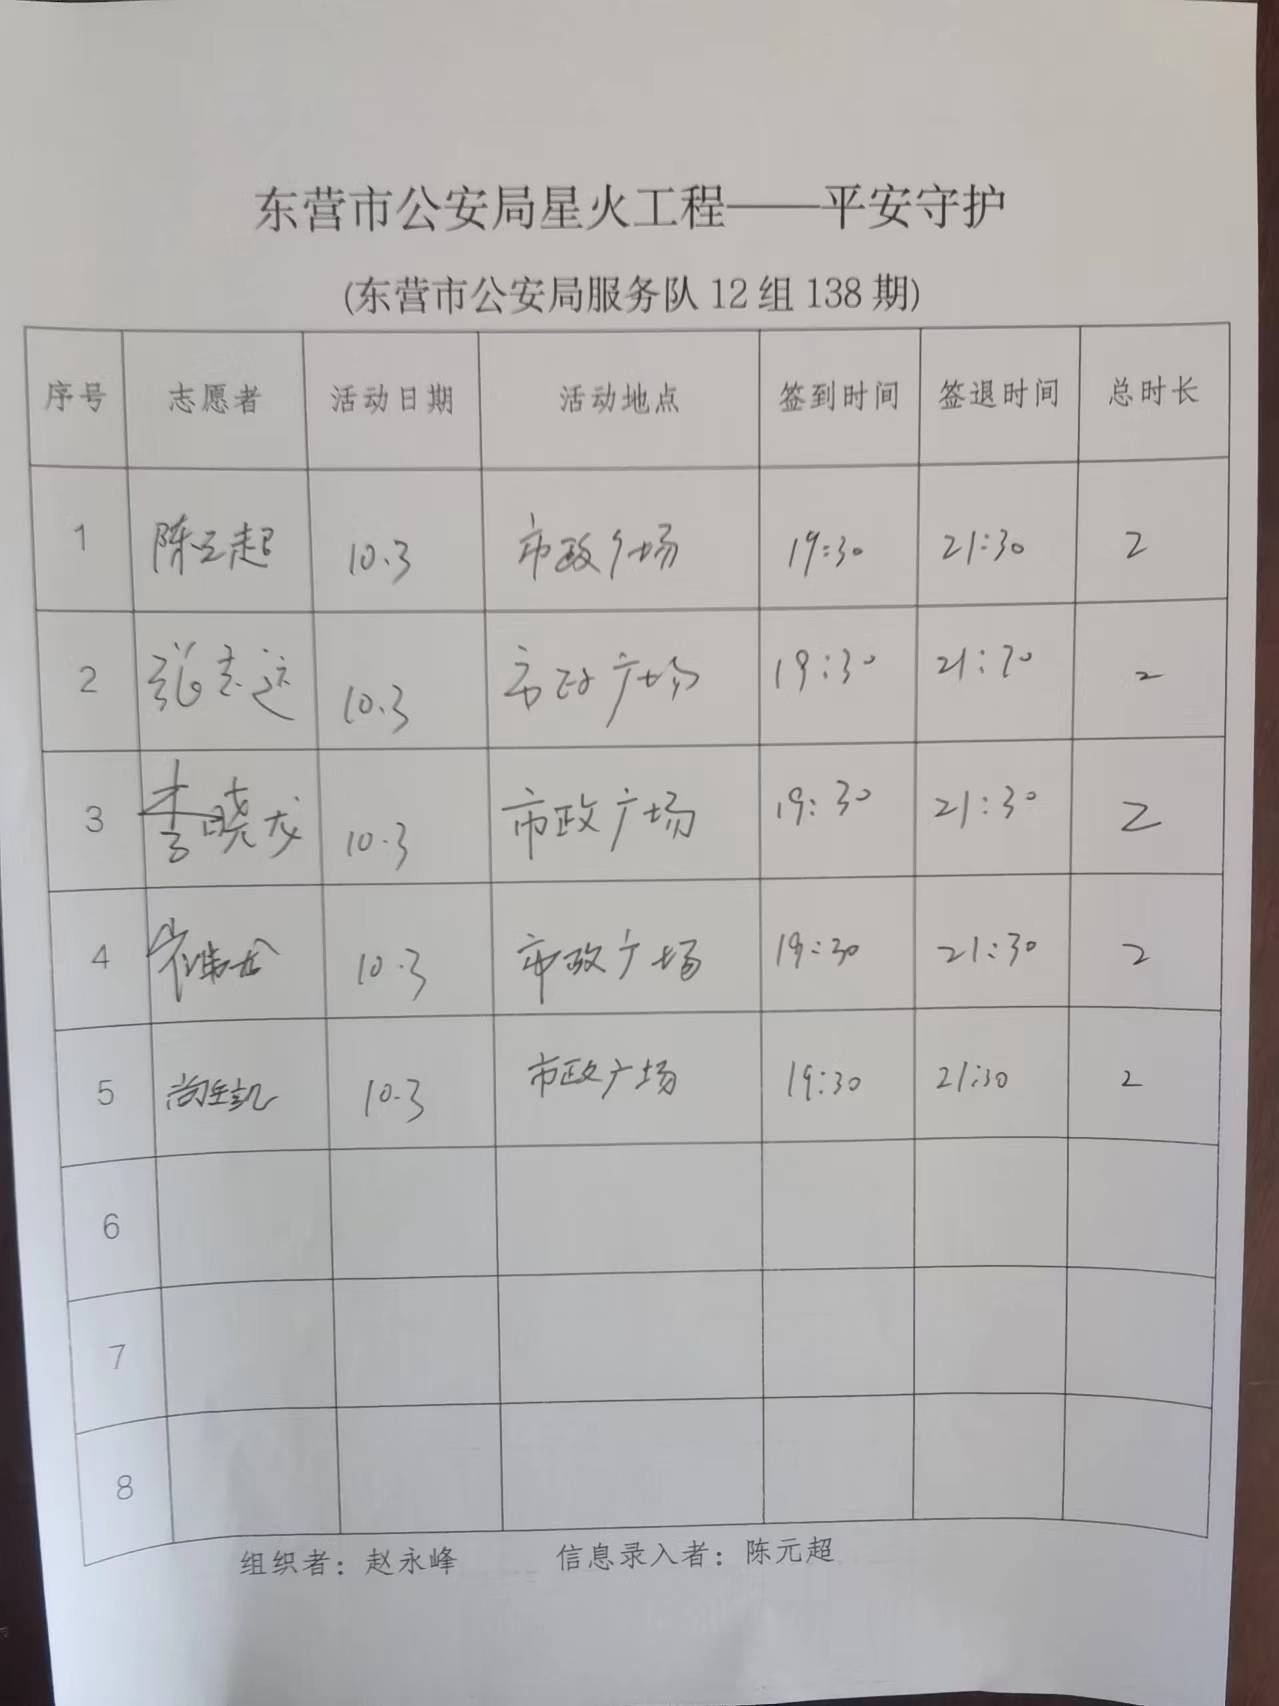 东营市公安局星火工程——平安守护
(东营市公安局服务队 12 组 138 期)
序号 志愿者 活动日期 活动地点 签到时间 签退时间 总时长
1 陈元超 10.3 市政广场 19:30 21:30 2
2 张志远 10.3 市政广场 19:30 21:30 2
3 李晓龙 10.3 市政广场 19:30 21:30 2
4 10.3 市政广场 19:30 21:30 2
5 10.3 市政广场 19:30 21:30 2
6
7
8
组织者：赵永峰 信息录入者：陈元超